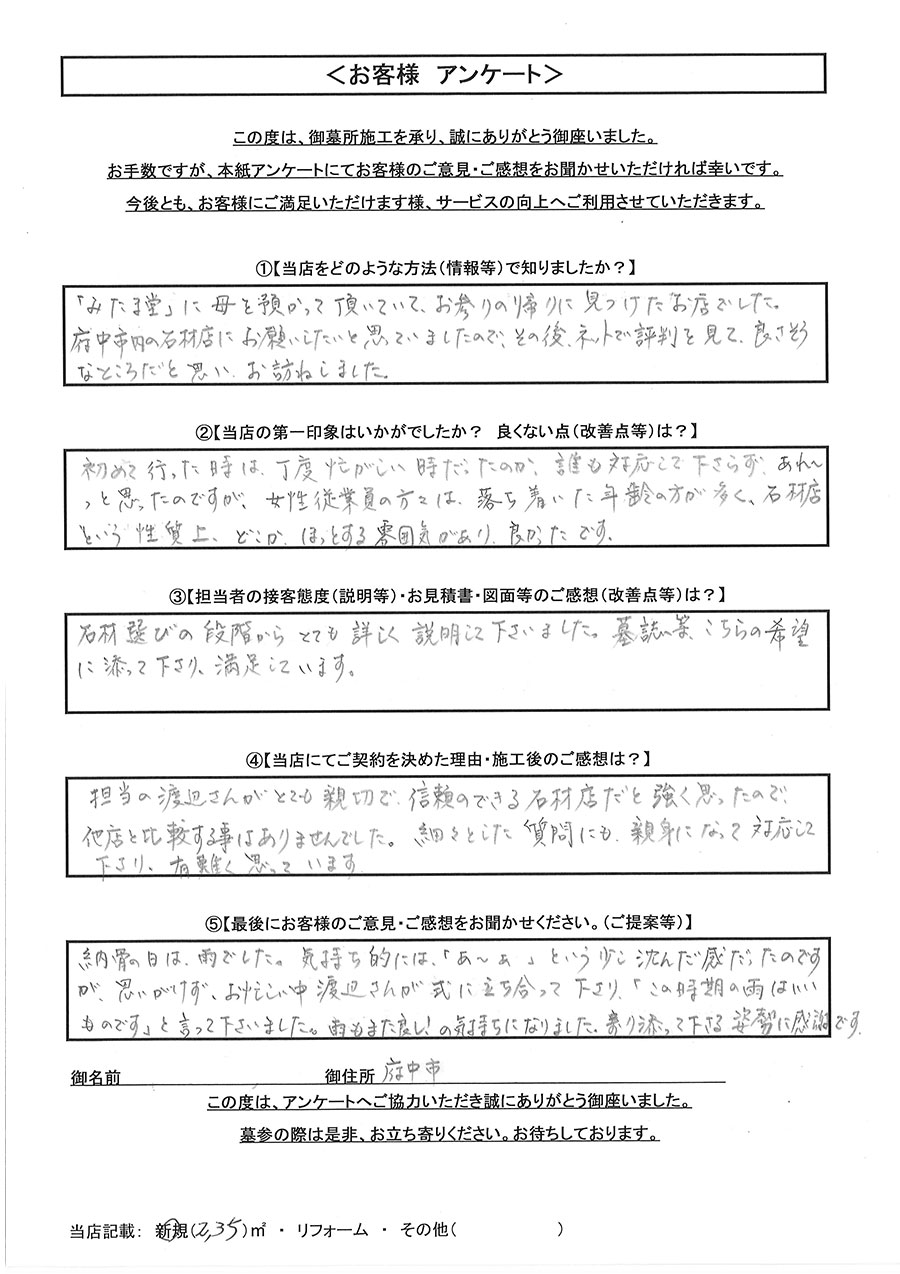 ＜お客様　アンケート＞
この度は、御墓所施工を承り、誠にありがとう御座いました。
お手数ですが、本紙アンケートにてお客様のご意見・ご感想をお聞かせいただければ幸いです。
今後とも、お客様にご満足いただけます様、サービスの向上へご利用させていただきます。
①【当店をどのような方法（情報等）で知りましたか？】
「みたま堂」に母を預かって頂いていて、お参りの帰りに見つけたお店でした。
府中市内の石材店にお願いしたいと思っていましたので、その後、ネットで評判を見て、良さそう
なところだと思い、お訪ねしました。
②【当店の第一印象はいかがでしたか？　良くない点（改善点等）は？】
初めて行った時は、丁度忙がしい時だったのか、誰も対応して下さらず、あれ〜
っと思ったのですが、女性従業員の方々は、落ち着いた年齢の方が多く、石材店
という性質上、どこか、ほっとする雰囲気があり、良かったです。
③【担当者の接客態度（説明等）・お見積書・図面等のご感想（改善点等）は？】
石材選びの段階からとても詳しく説明して下さいました。墓誌等、こちらの希望
に添って下さり、満足しています。
④【当店にてご契約を決めた理由・施工後のご感想は？】
担当の渡辺さんがとても親切で、信頼のできる石材店だと強く思ったので、
他店と比較する事はありませんでした。細々とした質問にも、親身になって対応して
下さり、有難く思っています
⑤【最後にお客様のご意見・ご感想をお聞かせください。（ご提案等）】
納骨の日は、雨でした。気持ち的には、「あ〜ぁ」という少し沈んだ感だったのです
が、思いがけず、お忙しい中渡辺さんが式に立ち合って下さり、「この時期の雨はいい
ものです」と言って下さいました。雨もまた良し！の気持ちになりました。寄り添って下さる姿勢に感謝です。
御名前　御住所 府中市
この度は、アンケートへご協力いただき誠にありがとう御座いました。
墓参の際は是非、お立ち寄りください。お待ちしております。
当店記載：　新規（2,35）㎡　・　リフォーム　・　その他（　　　　　）